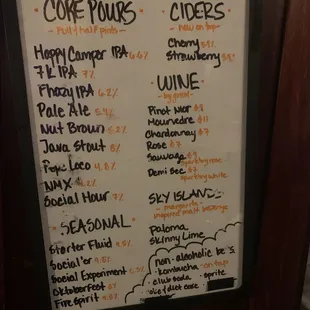 CORE POURS
- full / half pints -
Happy Camper IPA 6.6%
7K IPA 7%
Phazy IPA 6.2%
Pale Ale
Nut Brown
Java Stout 8%
Loco 4.8%
Social Hour 7%
SEASONAL
Starter Fluid
Social'er 4.8%
Social Experiment
Oktoberfest
Fire Spirit
CIDERS
- now on tap -
Cherry
Strawberry
WINE
- by glass -
Pinot Noir $8
Mourvedre $11
Chardonnay $7
Rose $7
$7
sparkling rose
Demi Sec $7
sparkling white
SKY ISLAND
- margarita -
inspired malt beverage
Paloma
Skinny Lime
non-alcoholic
• kombucha - on tap
• club soda • sprite
diet coke